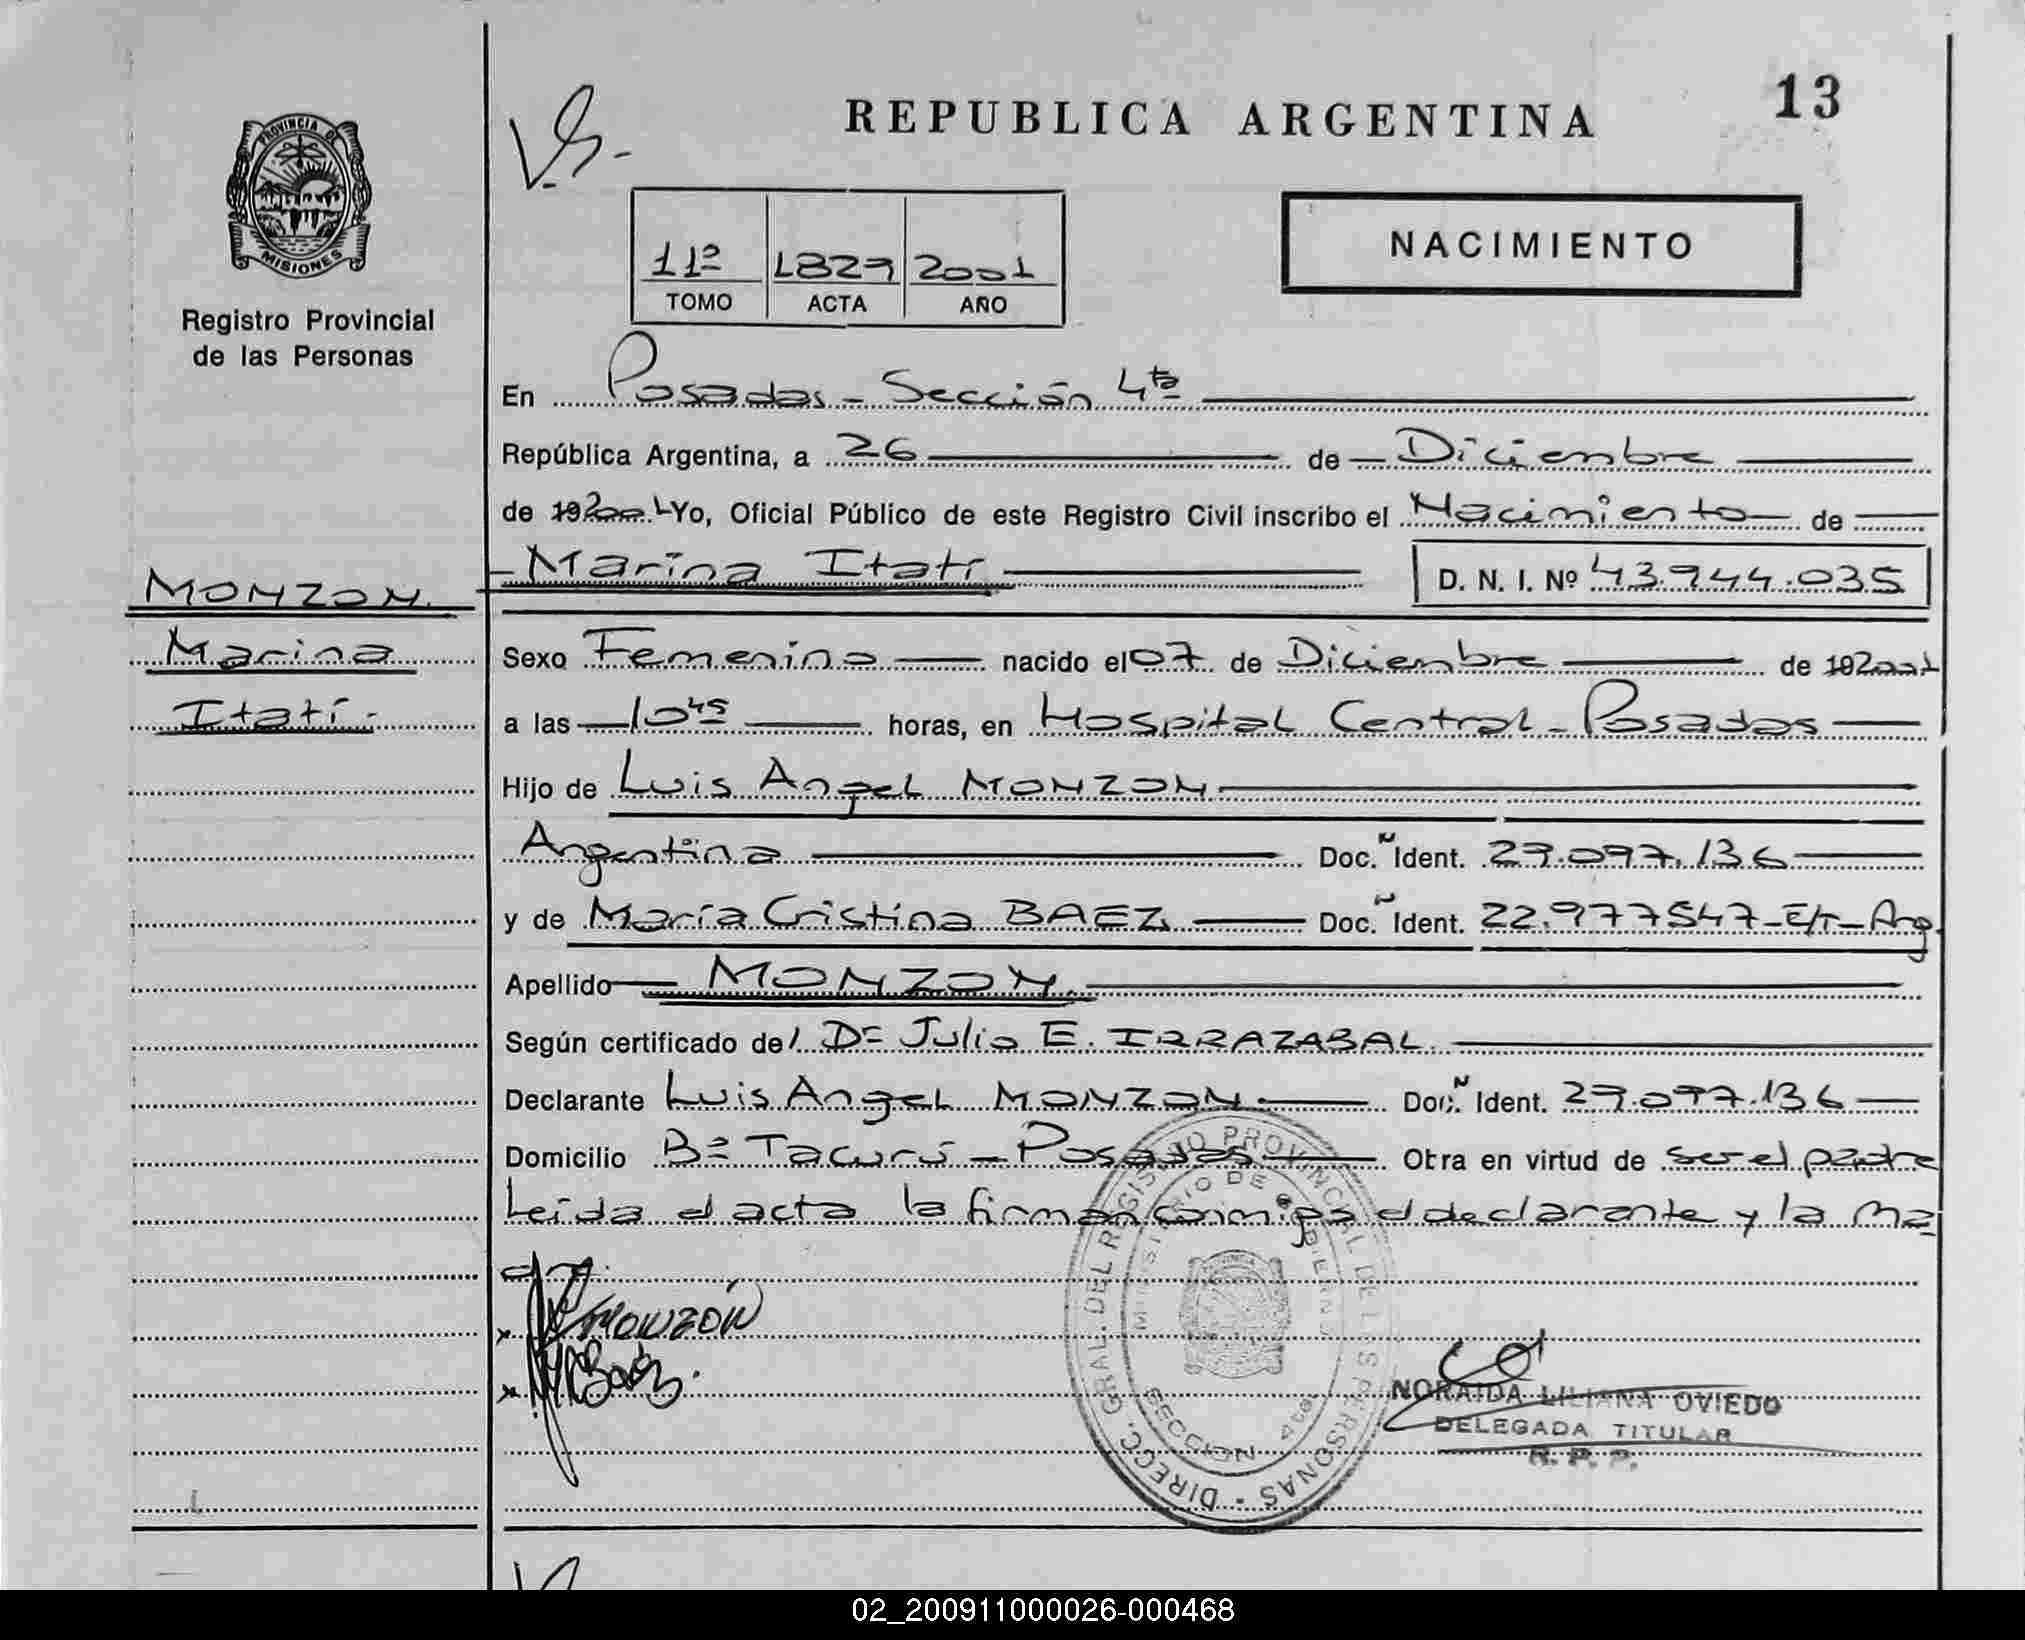 REPUBLICA ARGENTINA
13
PROVINCIA DE
MISIONES
Registro Provincial
de las Personas
NACIMIENTO
11º 1829 2001
TOMO ACTA AÑO
En Posadas - Sección 4ta
República Argentina, a 26 de Diciembre
de 192001 Yo, Oficial Público de este Registro Civil inscribo el Nacimiento de
Marina Itatí D. N. I. Nº 43.944.035
MONZON.
Marina
Itatí.-
Sexo Femenino nacido el 07 de Diciembre de 192001
a las 10 45 horas, en Hospital Central - Posadas
Hijo de Luis Angel MONZON
Argentina Doc. Ident. 29.097.136
y de María Cristina BAEZ Doc. Ident. 22.977547-E/T-Arg.
Apellido MONZON.
Según certificado de/ Dº Julio E. IRRAZABAL
Declarante Luis Angel MONZON Doc. Ident. 29.097.136
Domicilio Bº Tacurú - Posadas Obra en virtud de ser el padre
Leída el acta la firman conmigo el declarante y la ma
dre.
x MONZÓN
x Baéz.
DIRECC. GRAL. DEL REGISTRO PROVINCIAL DE LAS PERSONAS -
MINISTERIO DE GOBIERNO
SECCION 4ta
NORAIDA LILIANA OVIEDO
DELEGADA TITULAR
R. P. P.
02_200911000026-000468